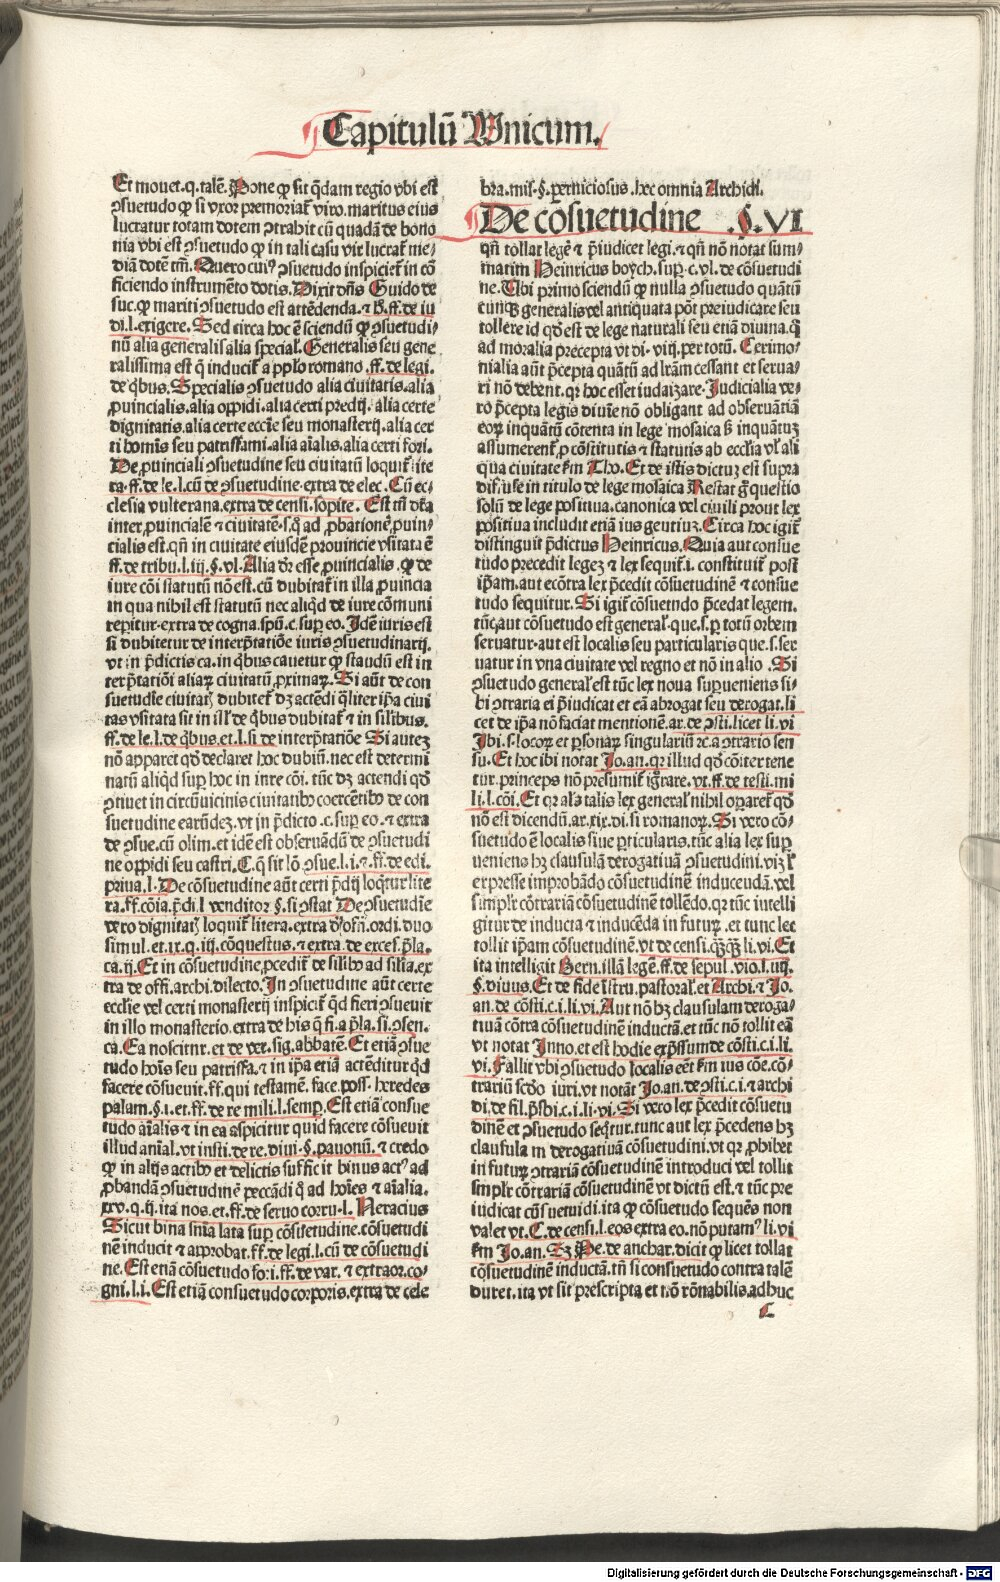 Capitulũ Unicum.
Et mouet.q.talẽ. Pone ꝙ sit q̃dam regio vbi est
ꝯsuetudo ꝙ si vxor premoriaẗ viro.maritus eius
lucratur totam dotem ꝯtrahit cũ quadã de bono
nia vbi est ꝯsuetudo ꝙ in tali casu vir lucraẗ me-
diã dotẽ tm̃. Quero cuiꝰ ꝯsuetudo inspicieẗ in cõ
ficiendo instrumẽto dotis. Dixit dñs Guido de
suc.ꝙ mariti ꝯsuetudo est attẽdenda.⁊ .ff.de iu
di.l.exigere. Sed circa hoc ẽ sciendũ ꝙ ꝯsuetudi-
nũ alia generalis alia special. Generalis seu gene
ralissima est q̃ induciẗ a pp̃lo romano .ff.de legi.
de q̃bus. Specialis ꝯsuetudo alia ciuitatis.alia
ꝓuincialis.alia oppidi.alia certi predij. alia certe
dignitatis.alia certe eccl̃ie seu monasterij.alia cer
ti homĩs seu patrisfami.alia aĩalis.alia certi fori.
De ꝓuinciali ꝯsuetudine seu ciuitatũ loquiẗ lite
ra.ff.de le.l.cũ de ꝯsuetudine.extra de elec. Cũ ec-
clesia vulterana.extra de censi.sopite. Est tñ dr̃a
inter ꝓuincialẽ ⁊ ciuitatẽ.s.q̃ ad ꝓbationẽ ꝓuin-
cialis est.qñ in ciuitate eiusdẽ prouincie vsitata ẽ
ff.de tribu.l.iij.§.vl. Alia dꝫ esse ꝓuincialis.ꝙ de
iure cõi statutũ nõ est.cũ dubitaẗ in illa ꝓuincia
in qua nihil est statutũ nec aliq̃d de iure cõmuni
reperitur.extra de cogna.spũ.c.super eo. Idẽ iuris est
si dubitetur de interp̃tatiõe iuris ꝯsuetudinarij.
vt in p̃dictis ca.in q̃bus cauetur ꝙ standũ est in
terp̃tatiõi aliaꝝ ciuitatũ ꝓximaꝝ. Si aũt de con
suetudĩe ciuitatꝭ dubiteẗ dꝫ actẽdi q̃liter ip̃a ciui
tas vsitata sit in ill de q̃bus dubitaẗ ⁊ in silibus.
ff.de le.l.de q̃bus.et.l.si de interp̃tatiõe Si auteꝫ
nõ apparet qd̃ declaret hoc dubiũ.nec est determi
natũ aliq̃d sup̃ hoc in iure cõi. tũc dꝫ actendi qd̃
ꝯtinet in circũuicinis ciuitatibꝰ coercẽtibꝰ de con
suetudine earũdeꝫ.vt in p̃dicto .c.sup̃ eo.⁊ extra
de ꝯsue.cũ olim.et idẽ est obseruãdũ de ꝯsuetudi
ne oppidi seu castri. C.q̃ sit lõ ꝯsue.l.i.⁊.ff.de edi.
priua.l. De cõsuetudine aũt certi p̃dij loq̃tur lite
ra.ff.cõia p̃di.l venditor §.si ꝯstat De ꝯsuetudĩe
vero dignitatꝭ loquiẗ litera.extra de off̃.ordi.duo
simul.et.ix.q.iij.cõquestus.⁊ extra.de exces.p̃la.
ca.ij. Et in cõsuetudine ꝓcediẗ de silibꝰ ad silia.ex
tra de offi.archi.dilecto. In ꝯsuetudine aũt certe
eccl̃ie vel certi monasterij inspiciẗ qd̃ fieri ꝯsueuit
in illo monasterio.extra de his q̃ fi.a p̃la.si ꝯsen.
ca. Ea noscitnr.et de ver.sig.abbatẽ. Et etiã ꝯsue
tudo hoĩs seu patrisfa.⁊ in ip̃a etiã actẽditur qd̃
facere cõsueuit.ff.qui testamẽ.face.poss.heredes
palam.§.i.et.ff.de re mili.l.semp̃. Est etiã consue
tudo aĩalis ⁊ in ea aspicitur quid facere cõsueuit
illud anĩal.vt insti.de re.diui.§.pauonũ.⁊ credo
ꝙ in alijs actibꝰ et delictis sufficit binus actꝰ ad
ꝓbandã ꝯsuetudinẽ peccãdi q̃ ad hoĩes ⁊ aĩalia.
xxv.q.ij.ita nos.et.ff.de seruo corru.l. Neracius
Sicut bina sñia lata super cõsitetudine.cõsuetudi
nẽ inducit ⁊ approbat.ff.de legi.l.cũ de cõsuetudi
ne. Est etiã cõsuetudo fori.ff.de var.⁊ extraor.co-
gni.l.i. Est etiã consuetudo corporis.extra de cele
bra.mis.§.perniciosus.hec omnia Archidi.
De cõsuetudine .§.VI
qñ tollat legẽ ⁊ p̃iudicet legi.⁊ qñ nõ notat sum-
matim Heinricus boych.sup̃.c.vl.de cõsuetudi
ne. Ubi primo sciendũ ꝙ nulla ꝯsuetudo quãtũ
cunqꝫ generalis vel antiquata põt preiudicare seu
tollere id qd̃ est de lege naturali seu etiã diuina.q̃
ad moralia precepta vt di.viij.per totũ. Cerimo-
nialia aũt p̃cepta quãtũ ad lr̃am cessant et serua
ri nõ debent.qꝛ hoc esset iudaizare. Judicialia ve-
ro p̃cepta legis diuĩe nõ obligant ad obseruãtiã
eoꝝ inquãtũ cõtenta in lege mosaica sꝫ inquãtuꝫ
assumerent̃ ꝑ cõstitutis ⁊ statutis ab eccl̃ia vl̃ ali
q̃a ciuitate ẜm Tho. Et de istis dictuꝫ est supra
diffuse in titulo de lege mosaica Restat g̃ questio
solũ de lege positiua.canonica vel ciuili prout lex
positiua includit etiã ius gentiuꝫ. Circa hoc igiẗ
distinguit p̃dictus Heinricus. Quia aut consue
tudo precedit legeꝫ ⁊ lex sequiẗ.i.constituiẗ post
ip̃am.aut ecõtra lex p̃cedit cõsuetudinẽ ⁊ consue
tudo sequitur. Si igiẗ cõsuetndo p̃cedat legem.
tũc aut cõsuetudo est general.que.s.ꝑ totũ orbem
seruatur.aut est localis seu particularis que.s.ser
uatur in vna ciuitate vel regno et nõ in alio . Si
ꝯsuetudo general est tũc lex noua superueniens si-
bi ꝯtraria ei p̃iudicat et eã abrogat seu derogat.li
cet de ip̃a nõ faciat mentionẽ.ar.de ꝯsti.licet li.vi
Ibi.s.locoꝝ et psonaꝝ singulariũ ⁊c.a ꝯtrario sen
su. Et hoc ibi notat Jo.an.qꝛ illud qd̃ cõiter tene
tur.princeps nõ presumiẗ ignorare.vt.ff.de testi.mi
li.l.cõi. Et qꝛ als̃ talis lex general nihil oparet̃ qd̃
nõ est dicendũ.ar.xix.di.si romanoꝝ. Si vero cõ-
suetudo ẽ localis siue particularis.tũc alia lex sup̃
ueniens hꝫ clausulã derogatiuã ꝯsuetudini.viꝫ vl̃
expresse improbãdo cõsuetudinẽ inducendã.vel
simpl̃r cõtrariã cõsuetudinẽ tollẽdo.qꝛ tũc intelli
gitur de inducta ⁊ inducẽda in futuꝝ.et tunc lex
tollit ip̃am cõsuetudinẽ.vt de censi.q̃qꝫ li.vi. Et
ita intelligit Bern.illã legẽ.ff.de sepul.vio.l.iij.
§.diuus. Et de fide ĩstru.pastoral.et Archi.⁊ Jo.
an.de cõsti.c.i.li.vi. Aut nõ hꝫ clausulam deroga-
tiuã cõtra cõsuetudinẽ inductã.et tũc nõ tollit eã
vt notat Inno.et est hodie exp̃ssum de cõsti.c.i.li.
vi. Fallit vbi ꝯsuetudo localis eẽt ẜm ius cõe.cõ-
trariũ scd̃o iuri.vt notãt Jo.an.de ꝯsti.c.i.⁊ archi
di.de fil.p̃sbi.c.i.li.vi. Si vero lex p̃cedit cõsuetu
dinẽ et ꝯsuetudo seq̃tur.tunc aut lex p̃cedens hꝫ
clausulam derogatiuã cõsuetudini.vt qꝛ ꝓhibet
in futuꝝ ꝯtrariã cõsuetudinẽ introduci vel tollit
smpl̃r cõtrariã cõsuetudinẽ vt dictũ est.⁊ tũc pre
iudicat cõsuetuidi.ita ꝙ cõsuetudo sequẽs non
valet vt. C.de censi.l.eos extra eo.nõ putamꝰ li.vi
ẜm Jo.an. Sꝫ Pe.de anchar.dicit ꝙ licet tollat
cõsuetudinẽ inductã.tñ si consuetudo contra talẽ
duret.ita vt sit prescripta et nõ rõnabilis.adhuc
C
Digitalisierung gefördert durch die Deutsche Forschungsgemeinschaft - DFG